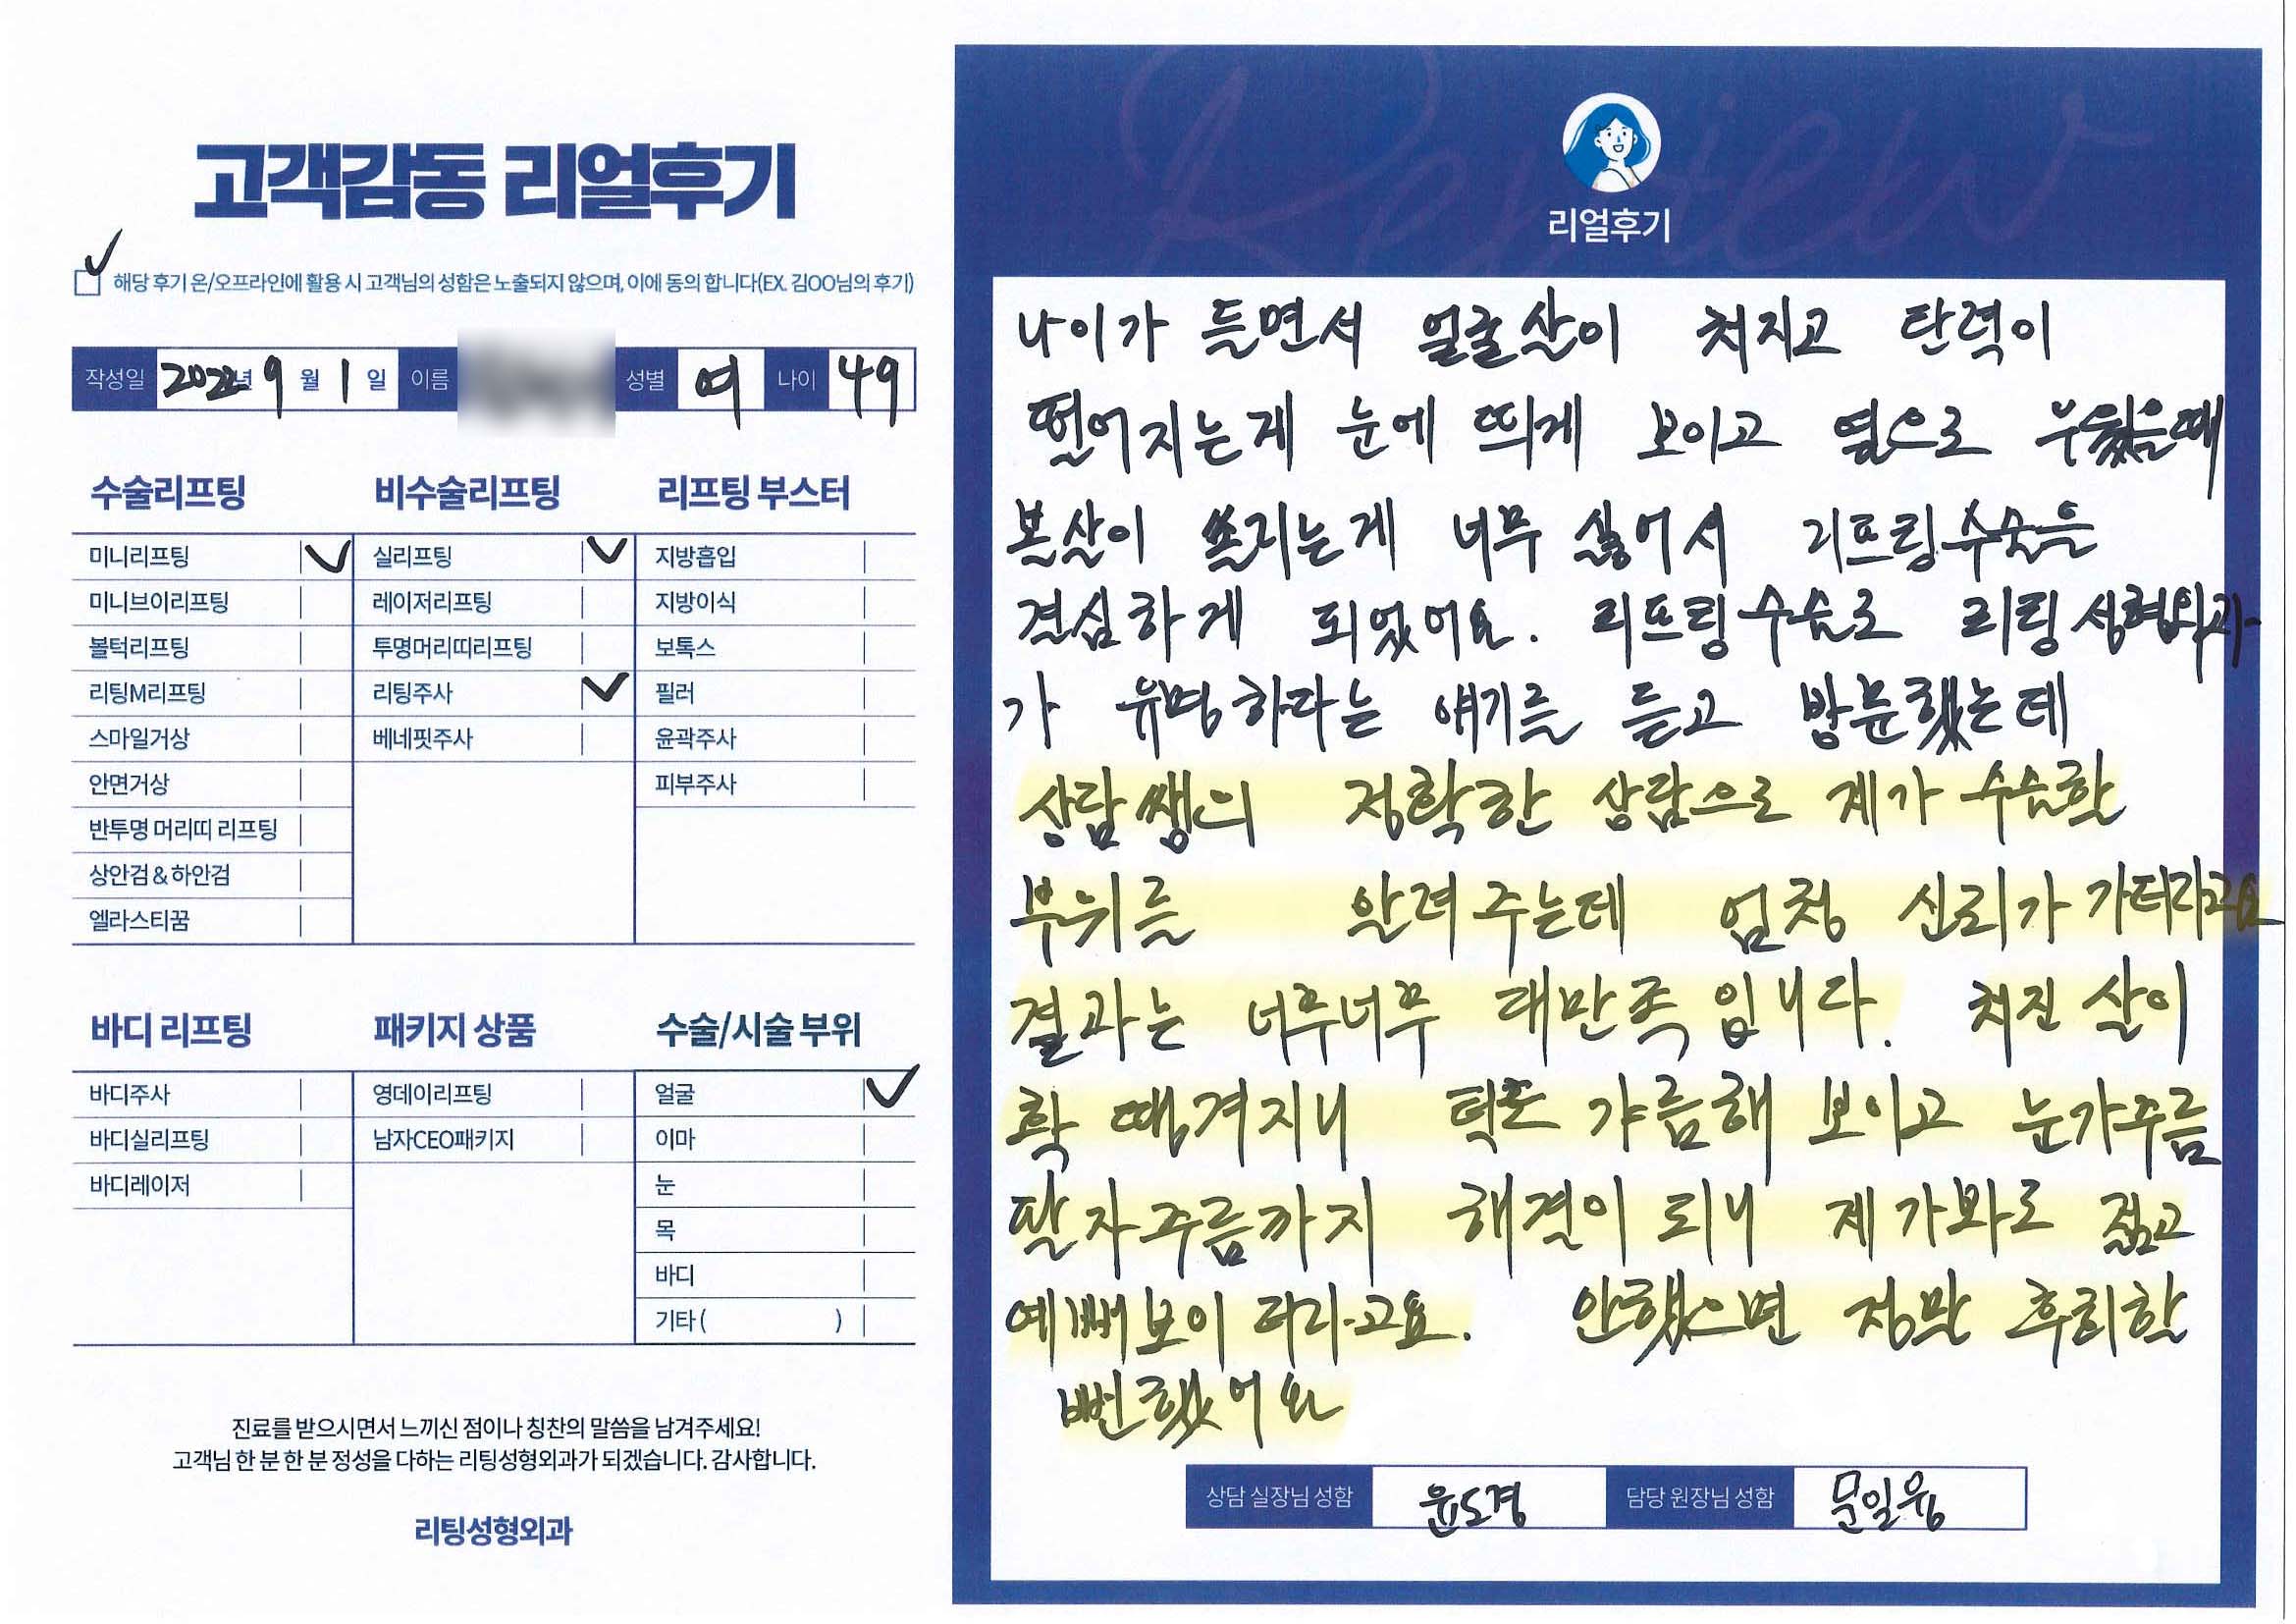 고객감동 리얼후기
✓
해당 후기 온/오프라인에 활용 시 고객님의 성함은 노출되지 않으며, 이에 동의 합니다(EX. 김OO님의 후기)
작성일 2022년 9월 1일 이름 성별 여 나이 49
수술리프팅
미니리프팅 ✓
미니브이리프팅
볼턱리프팅
리팅M리프팅
스마일거상
안면거상
반투명 머리띠 리프팅
상안검 & 하안검
엘라스티꿈
비수술리프팅
실리프팅 ✓
레이저리프팅
투명머리띠리프팅
리팅주사 ✓
베네핏주사
리프팅 부스터
지방흡입
지방이식
보톡스
필러
윤곽주사
피부주사
바디 리프팅
바디주사
바디실리프팅
바디레이저
패키지 상품
영데이리프팅
남자CEO패키지
수술/시술 부위
얼굴 ✓
이마
눈
목
바디
기타 ( )
진료를 받으시면서 느끼신 점이나 칭찬의 말씀을 남겨주세요!
고객님 한 분 한 분 정성을 다하는 리팅성형외과가 되겠습니다. 감사합니다.
리팅성형외과
Review
리얼후기
나이가 들면서 얼굴살이 쳐지고 탄력이
떨어지는게 눈에 띄게 보이고 옆으로 누웠을때
볼살이 쏠리는게 너무 싫어서 리프팅수술을
결심하게 되었어요. 리프팅수술로 리팅성형외과
가 유명하다는 얘기를 듣고 방문했는데
상담쌤의 정확한 상담으로 제가 수술할
부위를 알려주는데 엄청 신뢰가 가더라고요
결과는 너무너무 대만족 입니다. 쳐진 살이
확 땡겨지니 턱도 갸름해 보이고 눈가주름
팔자주름까지 해결이 되니 제가봐도 젊고
예뻐보이더라고요. 안했으면 정말 후회할
뻔했어요
상담 실장님 성함 윤도경 담당 원장님 성함 문일웅